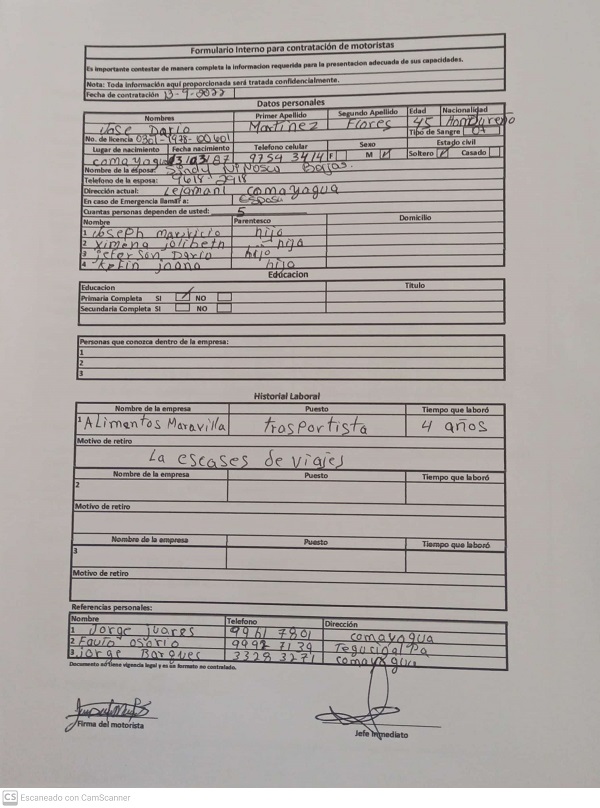 Formulario Interno para contratación de motoristas
Es importante contestar de manera completa la informacion requerida para la presentacion adecuada de sus capacidades.
Nota: Toda información aquí proporcionada será tratada confidencialmente.
Fecha de contratación 13-9-2022
Datos personales
Nombres Primer Apellido Segundo Apellido Edad Nacionalidad
Jose Dario Martinez Flores 45 Hondureño
No. de licencia Tipo de Sangre O+
Lugar de nacimiento Fecha nacimiento Telefono celular Sexo Estado civil
comayagua 9754 3414 F M Soltero Casado
Nombre de la esposa:
Telefono de la esposa: 9618-2918
Dirección actual: Lejamani comayagua
En caso de Emergencia llamar a: Esposa
Cuantas personas dependen de usted: 5
Nombre Parentesco Domicilio
1 Joseph mauricio hijo
2 Ximena jolibeth hija
3 jeferson Dario hijo
4 hijo
Educacion
Educacion Titulo
Primaria Completa SI NO
Secundaria Completa SI NO
Personas que conozca dentro de la empresa:
1
2
3
Historial Laboral
Nombre de la empresa Puesto Tiempo que laboró
1 ALimentos Maravilla trasportista 4 años
Motivo de retiro
La escases de viajes
Nombre de la empresa Puesto Tiempo que laboró
2
Motivo de retiro
Nombre de la empresa Puesto Tiempo que laboró
3
Motivo de retiro
Referencias personales:
Nombre Telefono Dirección
1 Jorge juares 9961 7801 comayagua
2 Fauto osorio 9992 7139 Tegucigalpa
3 jorge 3328 3271 comayagua
Documento
Firma del motorista
Jefe Inmediato
CS Escaneado con CamScanner